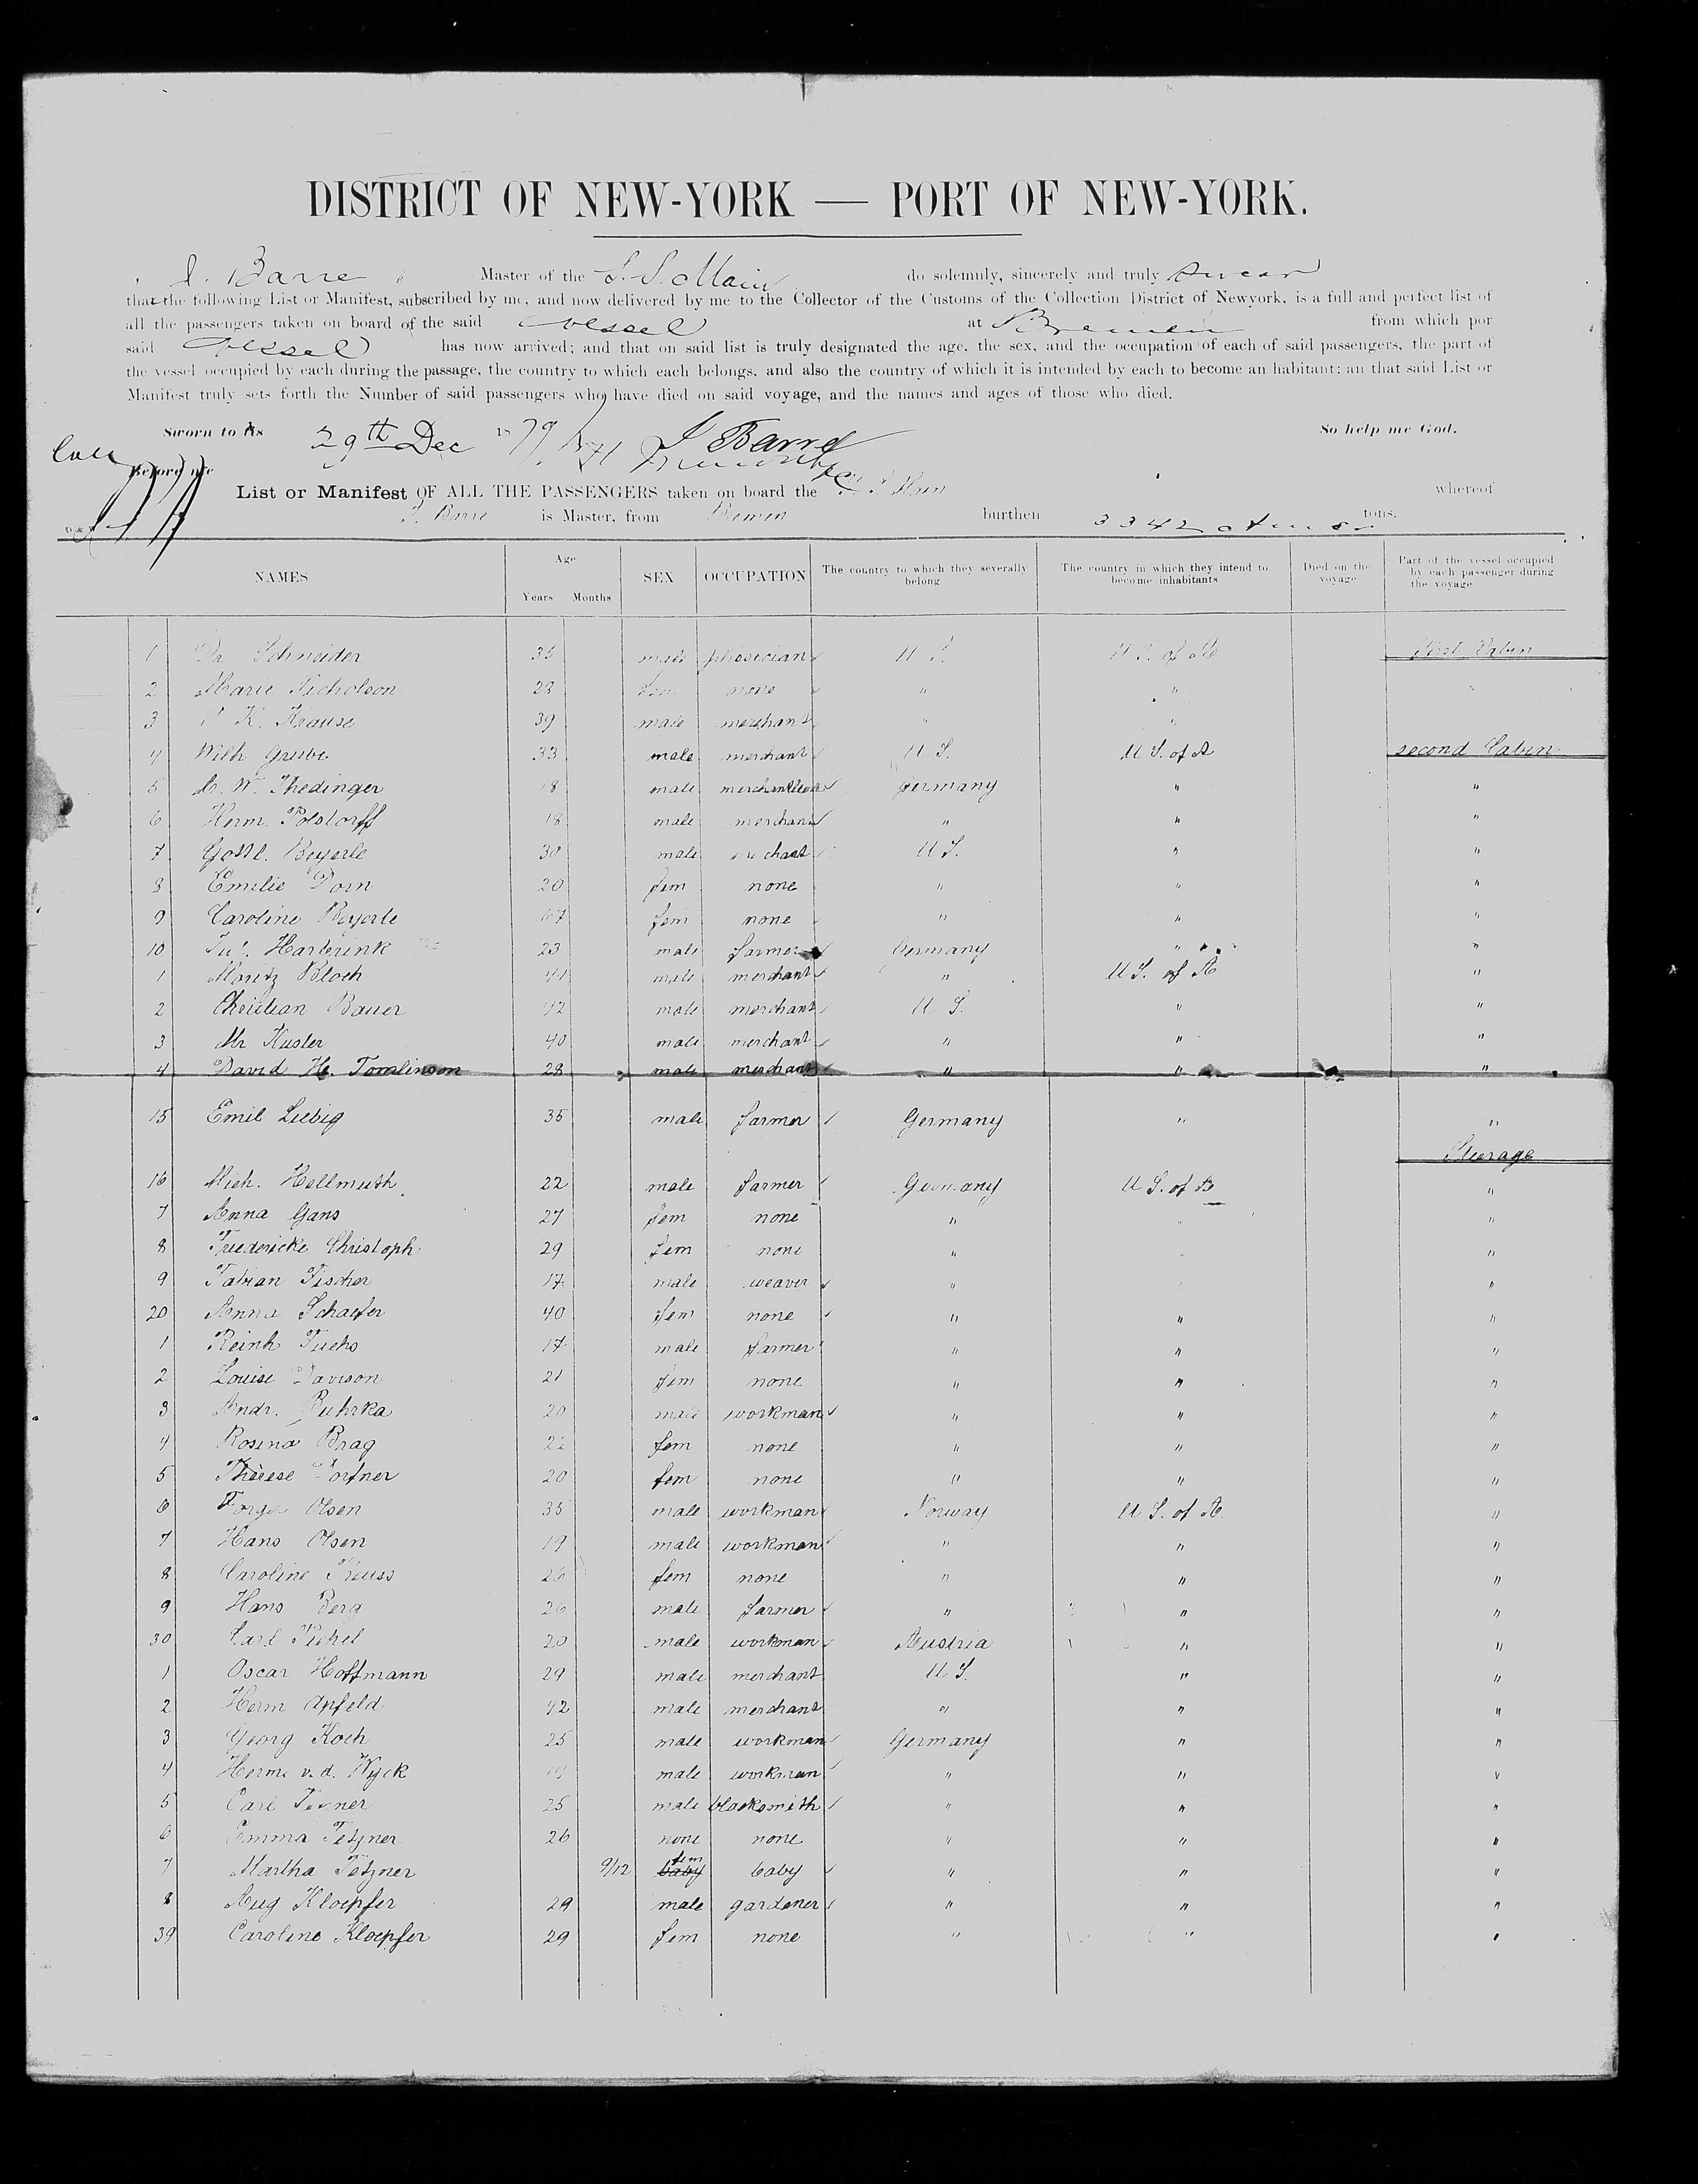 DISTRICT OF NEW-YORK — PORT OF NEW-YORK.
J. Barre Master of the S. S. Main do solemnly, sincerely and truly swear
that the following List or Manifest, subscribed by me, and now delivered by me to the Collector of the Customs of the Collection District of Newyork, is a full and perfect list of
all the passengers taken on board of the said vessel at Bremen from which por
said vessel has now arrived; and that on said list is truly designated the age, the sex, and the occupation of each of said passengers, the part of
the vessel occupied by each during the passage, the country to which each belongs, and also the country of which it is intended by each to become an habitant: an that said List or
Manifest truly sets forth the Number of said passengers who have died on said voyage, and the names and ages of those who died.
Sworn to 29th Dec 1879 J Barre So help me God.
Before me
List or Manifest OF ALL THE PASSENGERS taken on board the S. S. Main whereof
J. Barre is Master, from Bremen burthen 3342 tons.
NAMES Age Years Months SEX OCCUPATION The country to which they severally belong The country in which they intend to become inhabitants Died on the voyage Part of the vessel occupied by each passenger during the voyage
1 Schneider 35 male phosician U S. U S. of A First Cabin
2 Marie Nicholson 28 fem none " " "
3 K. Krause 39 male merchant " "
4 Wilh Grube 33 male merchant U S. U S. of A second Cabin
5 W. Thedinger 18 male Germany " "
6 Herm. Polstorff 18 male merchant " " "
7 Gottl. Beyerle 30 male merchant U S. " "
8 Emilie Dorn 20 fem none " " "
9 Caroline Beyerle fem none " " "
10 Jul. Harterink 23 male farmer Germany " "
1 Moritz Bloch 41 male merchant " U S. of A "
2 Christian Bauer 42 male merchant U S. " "
3 Mr Kusler 40 male merchant " " "
4 David H. Tomlinson 28 male merchant " " "
15 Emil Liebig 35 male farmer Germany " "
Steerage
16 Mich. Hellmuth 22 male farmer Germany U S. of A "
7 Anna Gans 27 fem none " " "
8 Friedericke Christoph 29 fem none " " "
9 Fabian Fischer 17 male weaver " "
20 Anna Schaefer 40 fem none " " "
1 Reinh Fuchs 17 male farmer " " "
2 Louise Davison 21 fem none " " "
3 Andr. Buhrka 20 male workman " " "
4 Rosina Brag 22 fem none " " "
5 Thèrese Dorfner 20 fem none " " "
6 Olsen 35 male workman Norway U S. of A. "
7 Hans Olsen 19 male workman " " "
8 Caroline Preuss 26 fem none " " "
9 Hans Berg 26 male farmer " " "
30 Carl Pichel 20 male workman Austria " "
1 Oscar Hoffmann 29 male merchant U S. " "
2 Herm Apfeld 42 male merchant " " "
3 Georg Koch 25 male workman Germany " "
4 Herm. v. d. Wyck 19 male workman " " "
5 Carl 25 male blacksmith " " "
6 Emma Tetzner 26 none none " " "
7 Martha Tetzner 9/12 baby fem baby " " "
8 Aug Kloepfer 29 male gardener " " "
39 Caroline Kloepfer 29 fem none " " "